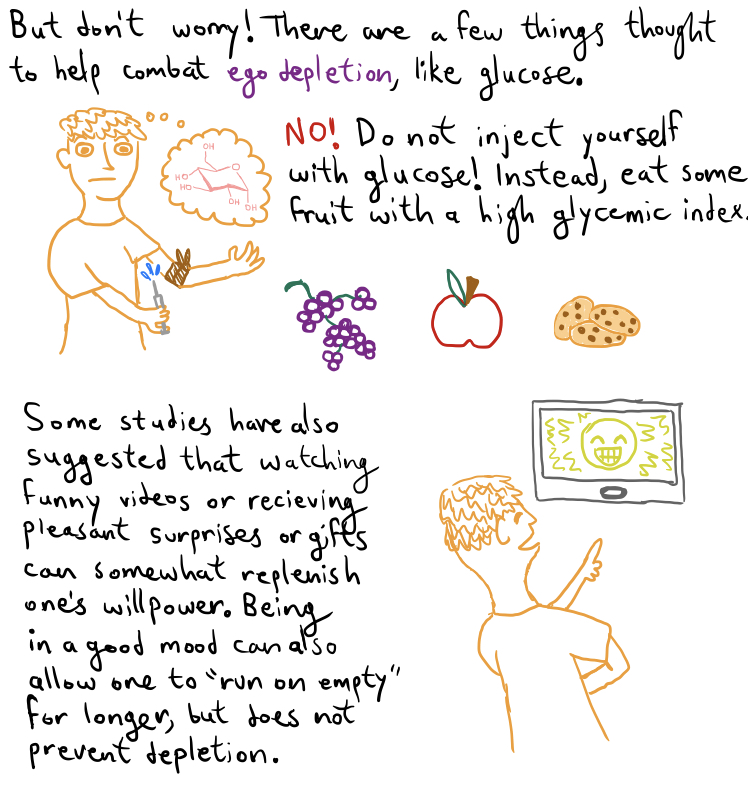 But don't worry! There are a few things thought
to help combat ego depletion, like glucose.
OH
O
HO
HO
OH
OH
NO! Do not inject yourself
with glucose! Instead, eat some
fruit with a high glycemic index.
Some studies have also
suggested that watching
funny videos or recieving
pleasant surprises or gifts
can somewhat replenish
one's willpower. Being
in a good mood can also
allow one to "run on empty"
for longer, but does not
prevent depletion.